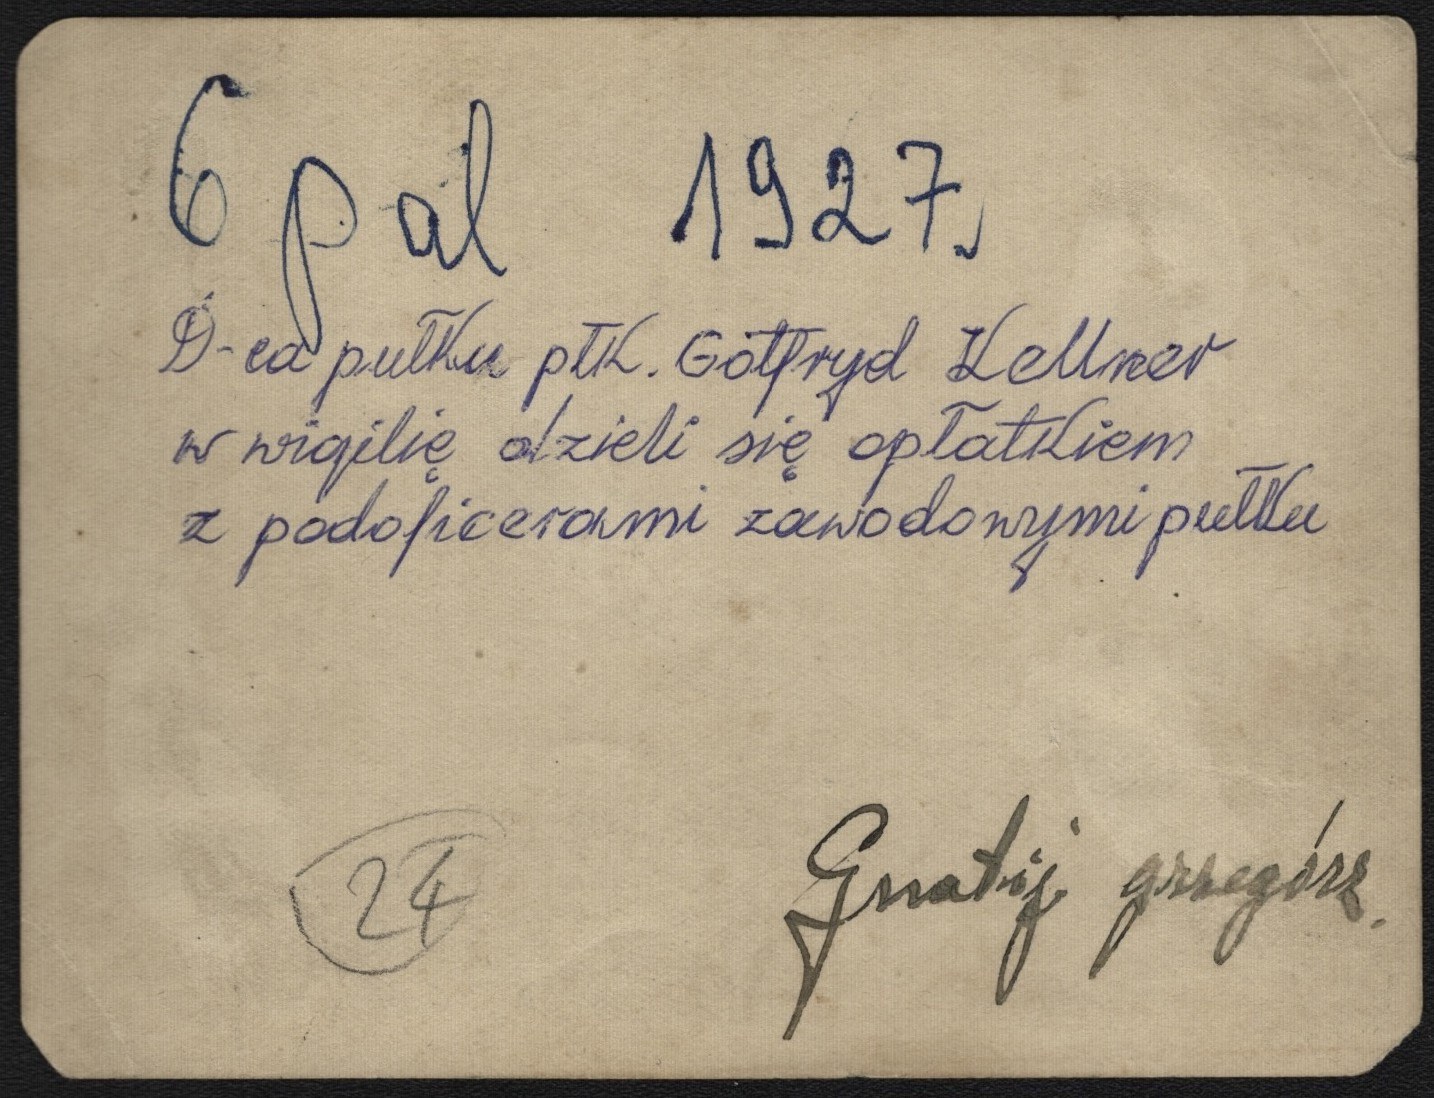 6 pal 1927,
D-ca pułku płk. Gotfryd Kellner
w wigilię dzieli się opłatkiem
z podoficerami zawodowymi pułku
24
Gnatij grzegórz.